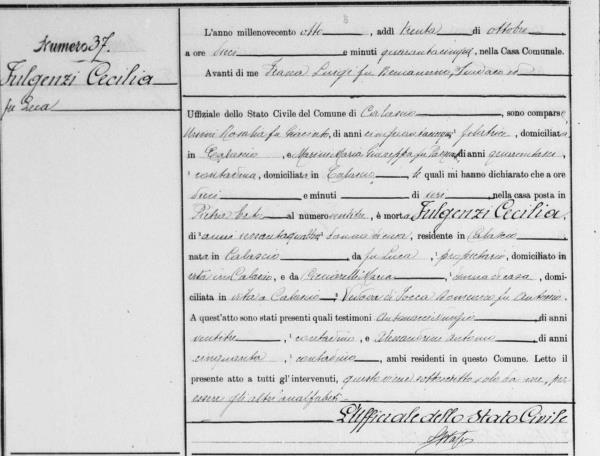 Numero 37.
Fulgenzi Cecilia
fu Luca
L'anno millenovecento otto, addì trenta di ottobre
a ore dieci e minuti quarantacinque, nella Casa Comunale.
Avanti di me Frasca Luigi fu Sindaco ed
Uffiziale dello Stato Civile del Comune di Calascio, sono comparse
Rosalia fu Giacinto, di anni cinquantacinque, filatrice, domiciliata
in Calascio, e Marini Maria Giuseppa fu di anni quarantasei
contadina, domiciliata in Calascio, le quali mi hanno dichiarato che a ore
dieci e minuti di ieri, nella casa posta in
Pietra al numero ventitre, è morta Fulgenzi Cecilia
di anni sessantaquattro, donna di casa, residente in Calascio
nata in Calascio, da fu Luca, proprietario, domiciliato in
vita in Calascio, e da Maria, donna di casa, domi-
ciliata in vita a Calascio, Vedova di Domenico fu Antonio.
A quest'atto sono stati presenti quali testimoni di anni
ventitre, contadino, e Alessandrini Antonio di anni
cinquanta, contadino, ambi residenti in questo Comune. Letto il
presente atto a tutti gl'intervenuti, questo viene sottoscritto solo da me, per
essere gli altri analfabeti.
L'Ufficiale dello Stato Civile